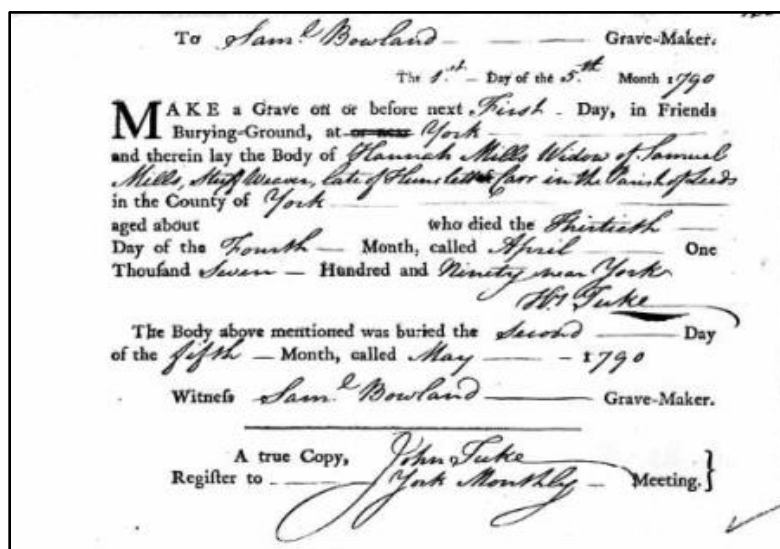 To Sam.l Bowland Grave-Maker.
The 1.st Day of the 5.th Month 1790
MAKE a Grave on or before next First Day, in Friends
Burying-Ground, at or near York
and therein lay the Body of Hannah Mills Widow of Samuel
Mills, Stuff Weaver, late of Hunslet Carr in the Parish of Leeds
in the County of York
aged about who died the Thirtieth
Day of the Fourth Month, called April One
Thousand Seven Hundred and Ninety near York
Wm Tuke
The Body above mentioned was buried the Second Day
of the fifth Month, called May 1790
Witneſs Sam.l Bowland Grave-Maker.
A true Copy, John Tuke
Regiſter to York Monthly Meeting.}